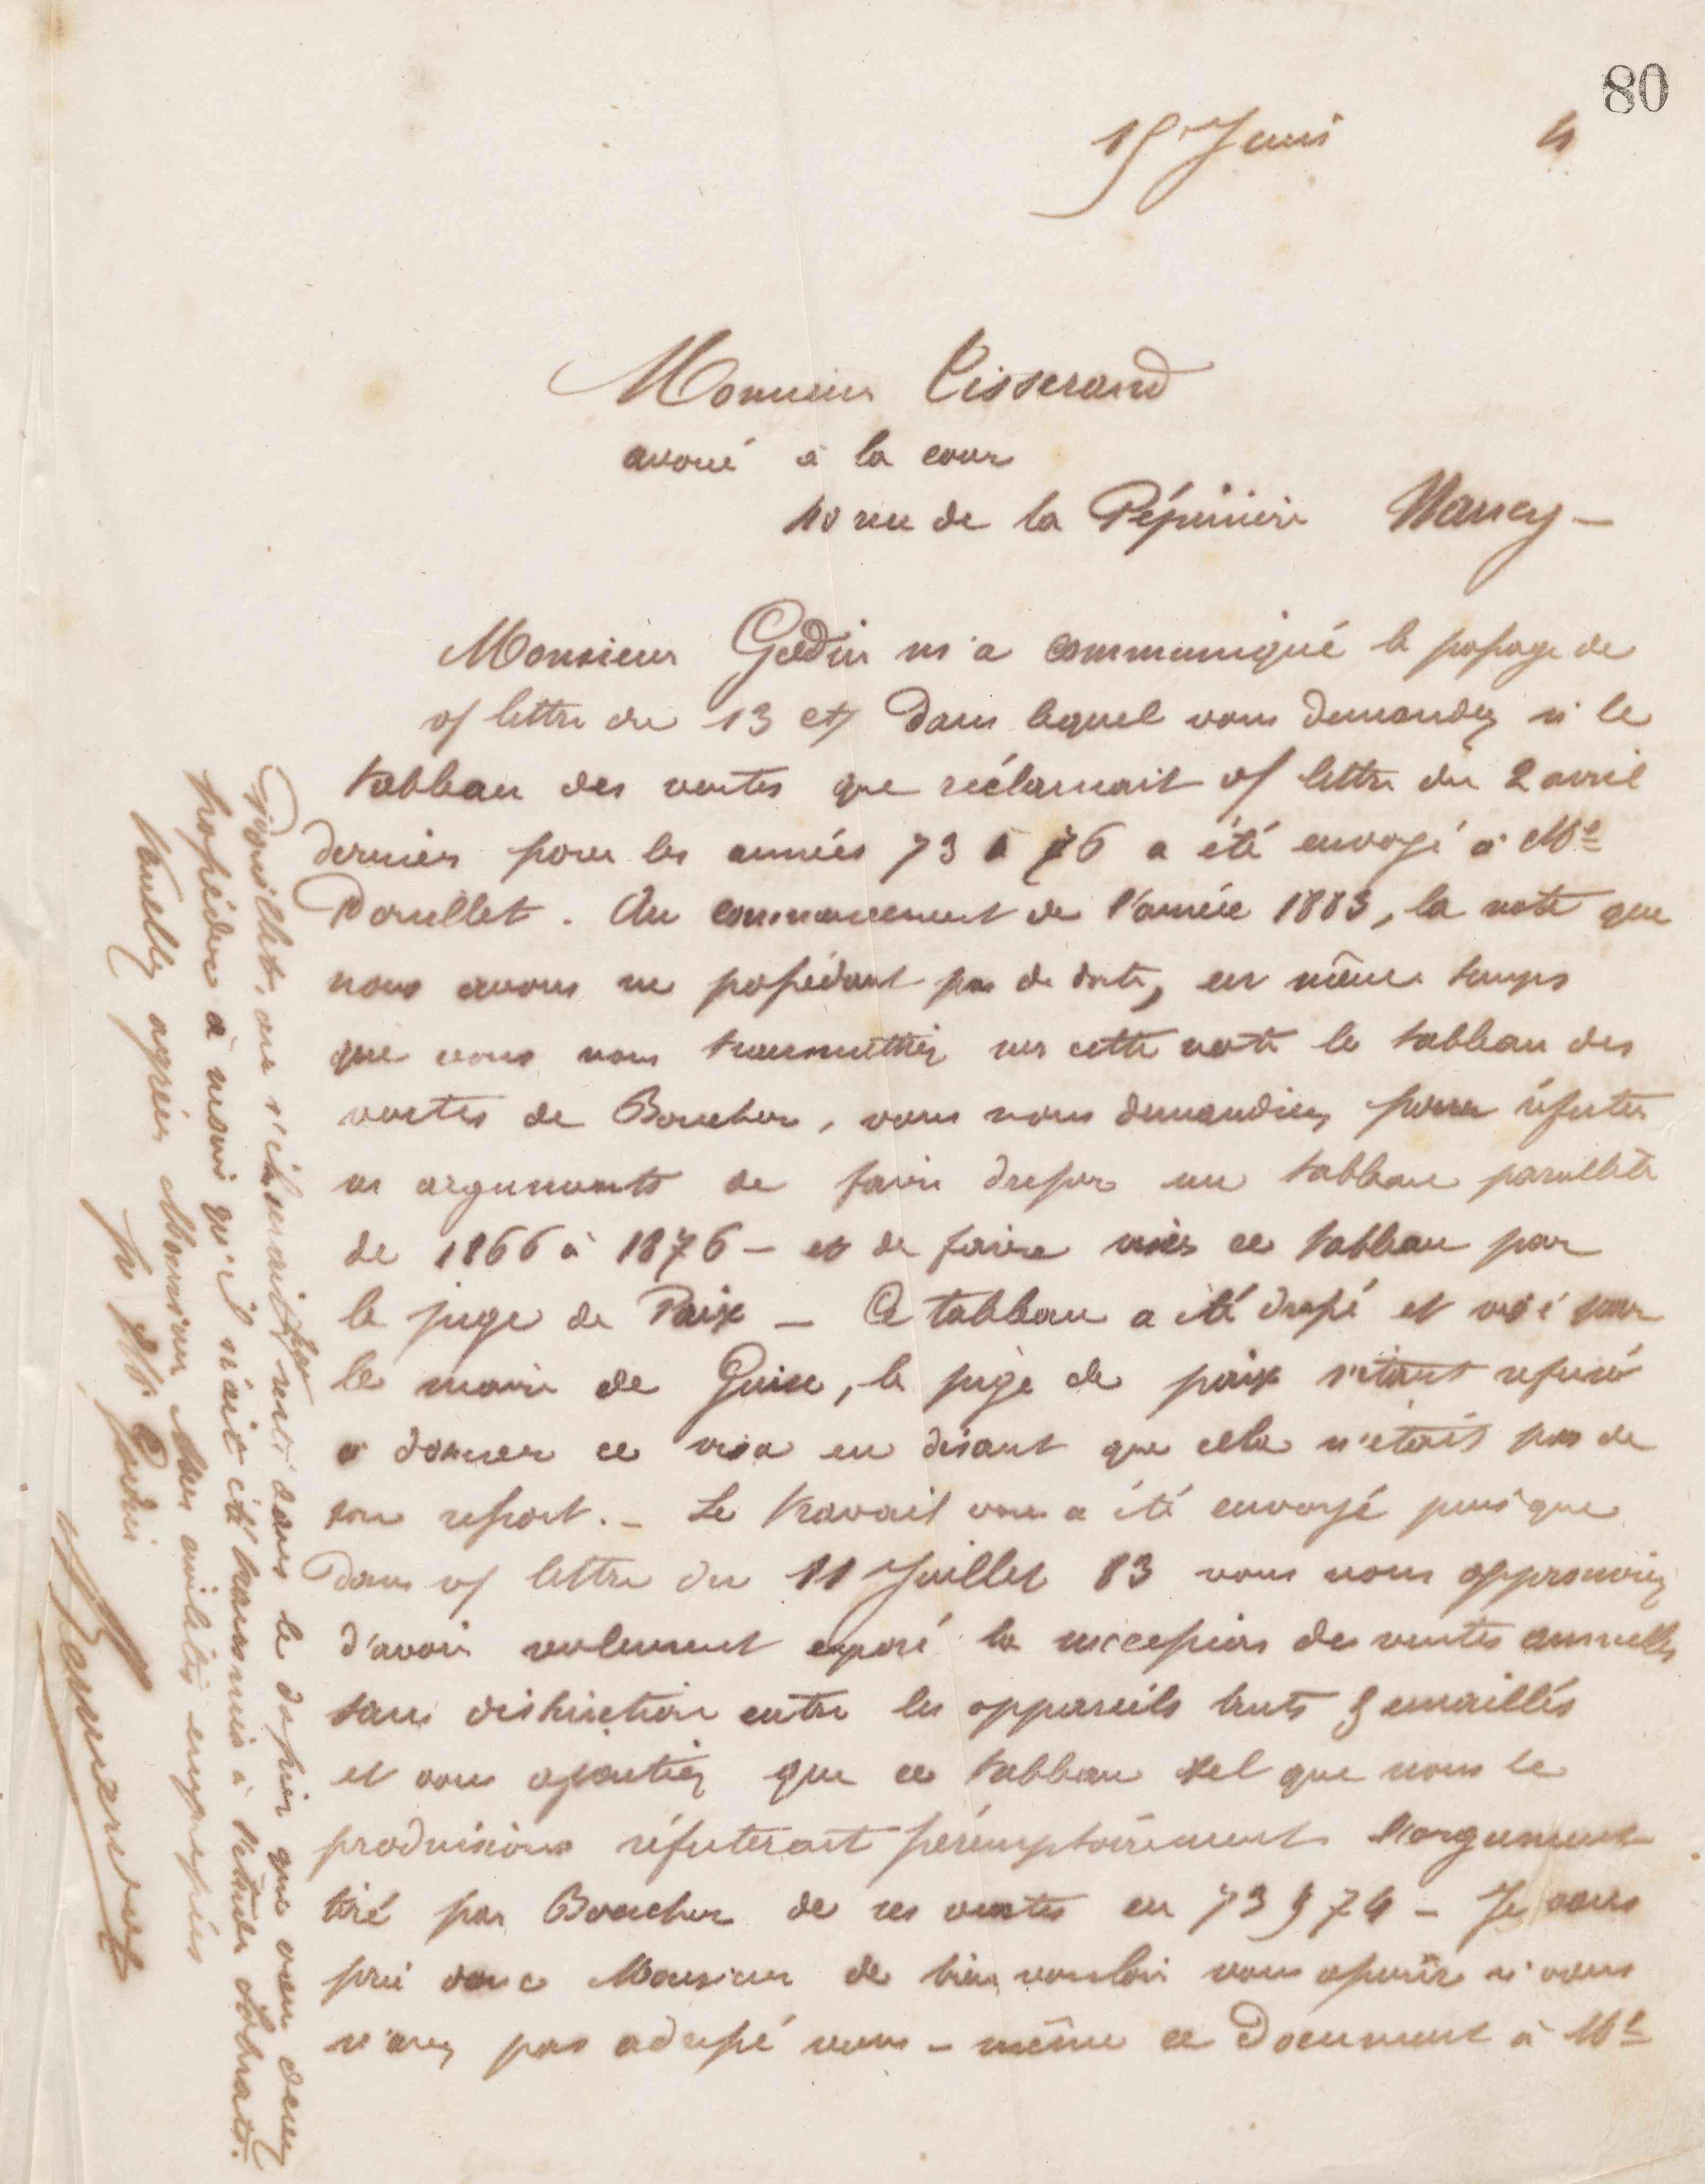 80
15 Juin 4
Monsieur Tisserand
avoué à la cour
40 rue de la Pépinière Nancy -
Monsieur Godin m'a communiqué le passage de
v/ lettre du 13 ct dans lequel vous demandez si le
tableau des ventes que réclamait v/ lettre du 2 avril
dernier pour les années 73 à 76 a été envoyé à Me
Pouillet. Au commencement de l'année 1883, la note que
nous avons ne possédant pas de date, en même temps
que vous nous transmettiez cette note le tableau des
ventes de Boucher, vous nous demandiez pour réfuter
ces arguments de faire dresser un tableau parallèle
de 1866 à 1876 - et de faire viser ce tableau par
le juge de Paix - Ce tableau a été dressé et visé par
le maire de Guise, le juge de paix s'étant refusé
à donner ce visa en disant que cela n'était pas de
son ressort. - Le travail vous a été envoyé puisque
dans v/ lettre du 11 Juillet 83 vous nous approuviez
d'avoir seulement exposé la des ventes annuelles
sans distinction entre les appareils bruts & émaillés
et vous ajoutiez que ce tableau tel que nous le
produisions réfuterait péremptoirement l'argument
tiré par Boucher de ses ventes en 73 & 74 - Je vous
prie donc Monsieur de bien vouloir vous assurer si vous
n'avez pas adressé vous-même ce document à Me
Pouillet, ou s'il serait resté dans le dossier que vous devez
posséder à moins qu'il n'ait été transmis à l'étude
Veuillez agréer Monsieur mes civilités empressées
Pr Godin